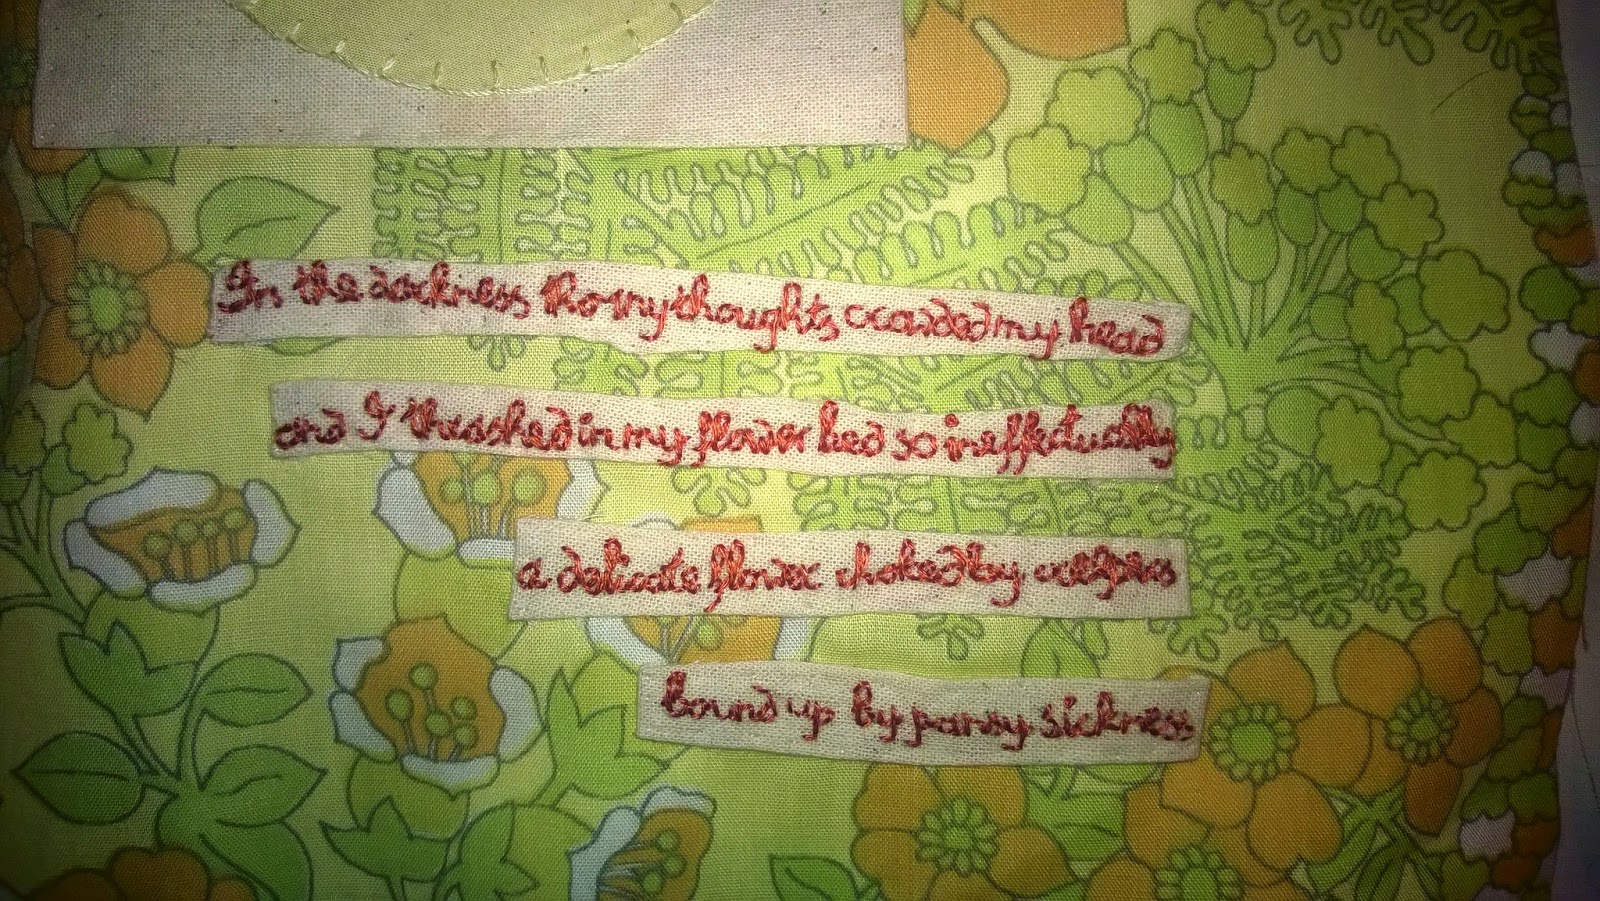 In the darkness tho my thoughts crowded my head
and I thrashed in my flower bed so ineffectually
a delicate flower choked by creepers
bound up by pansy sickness